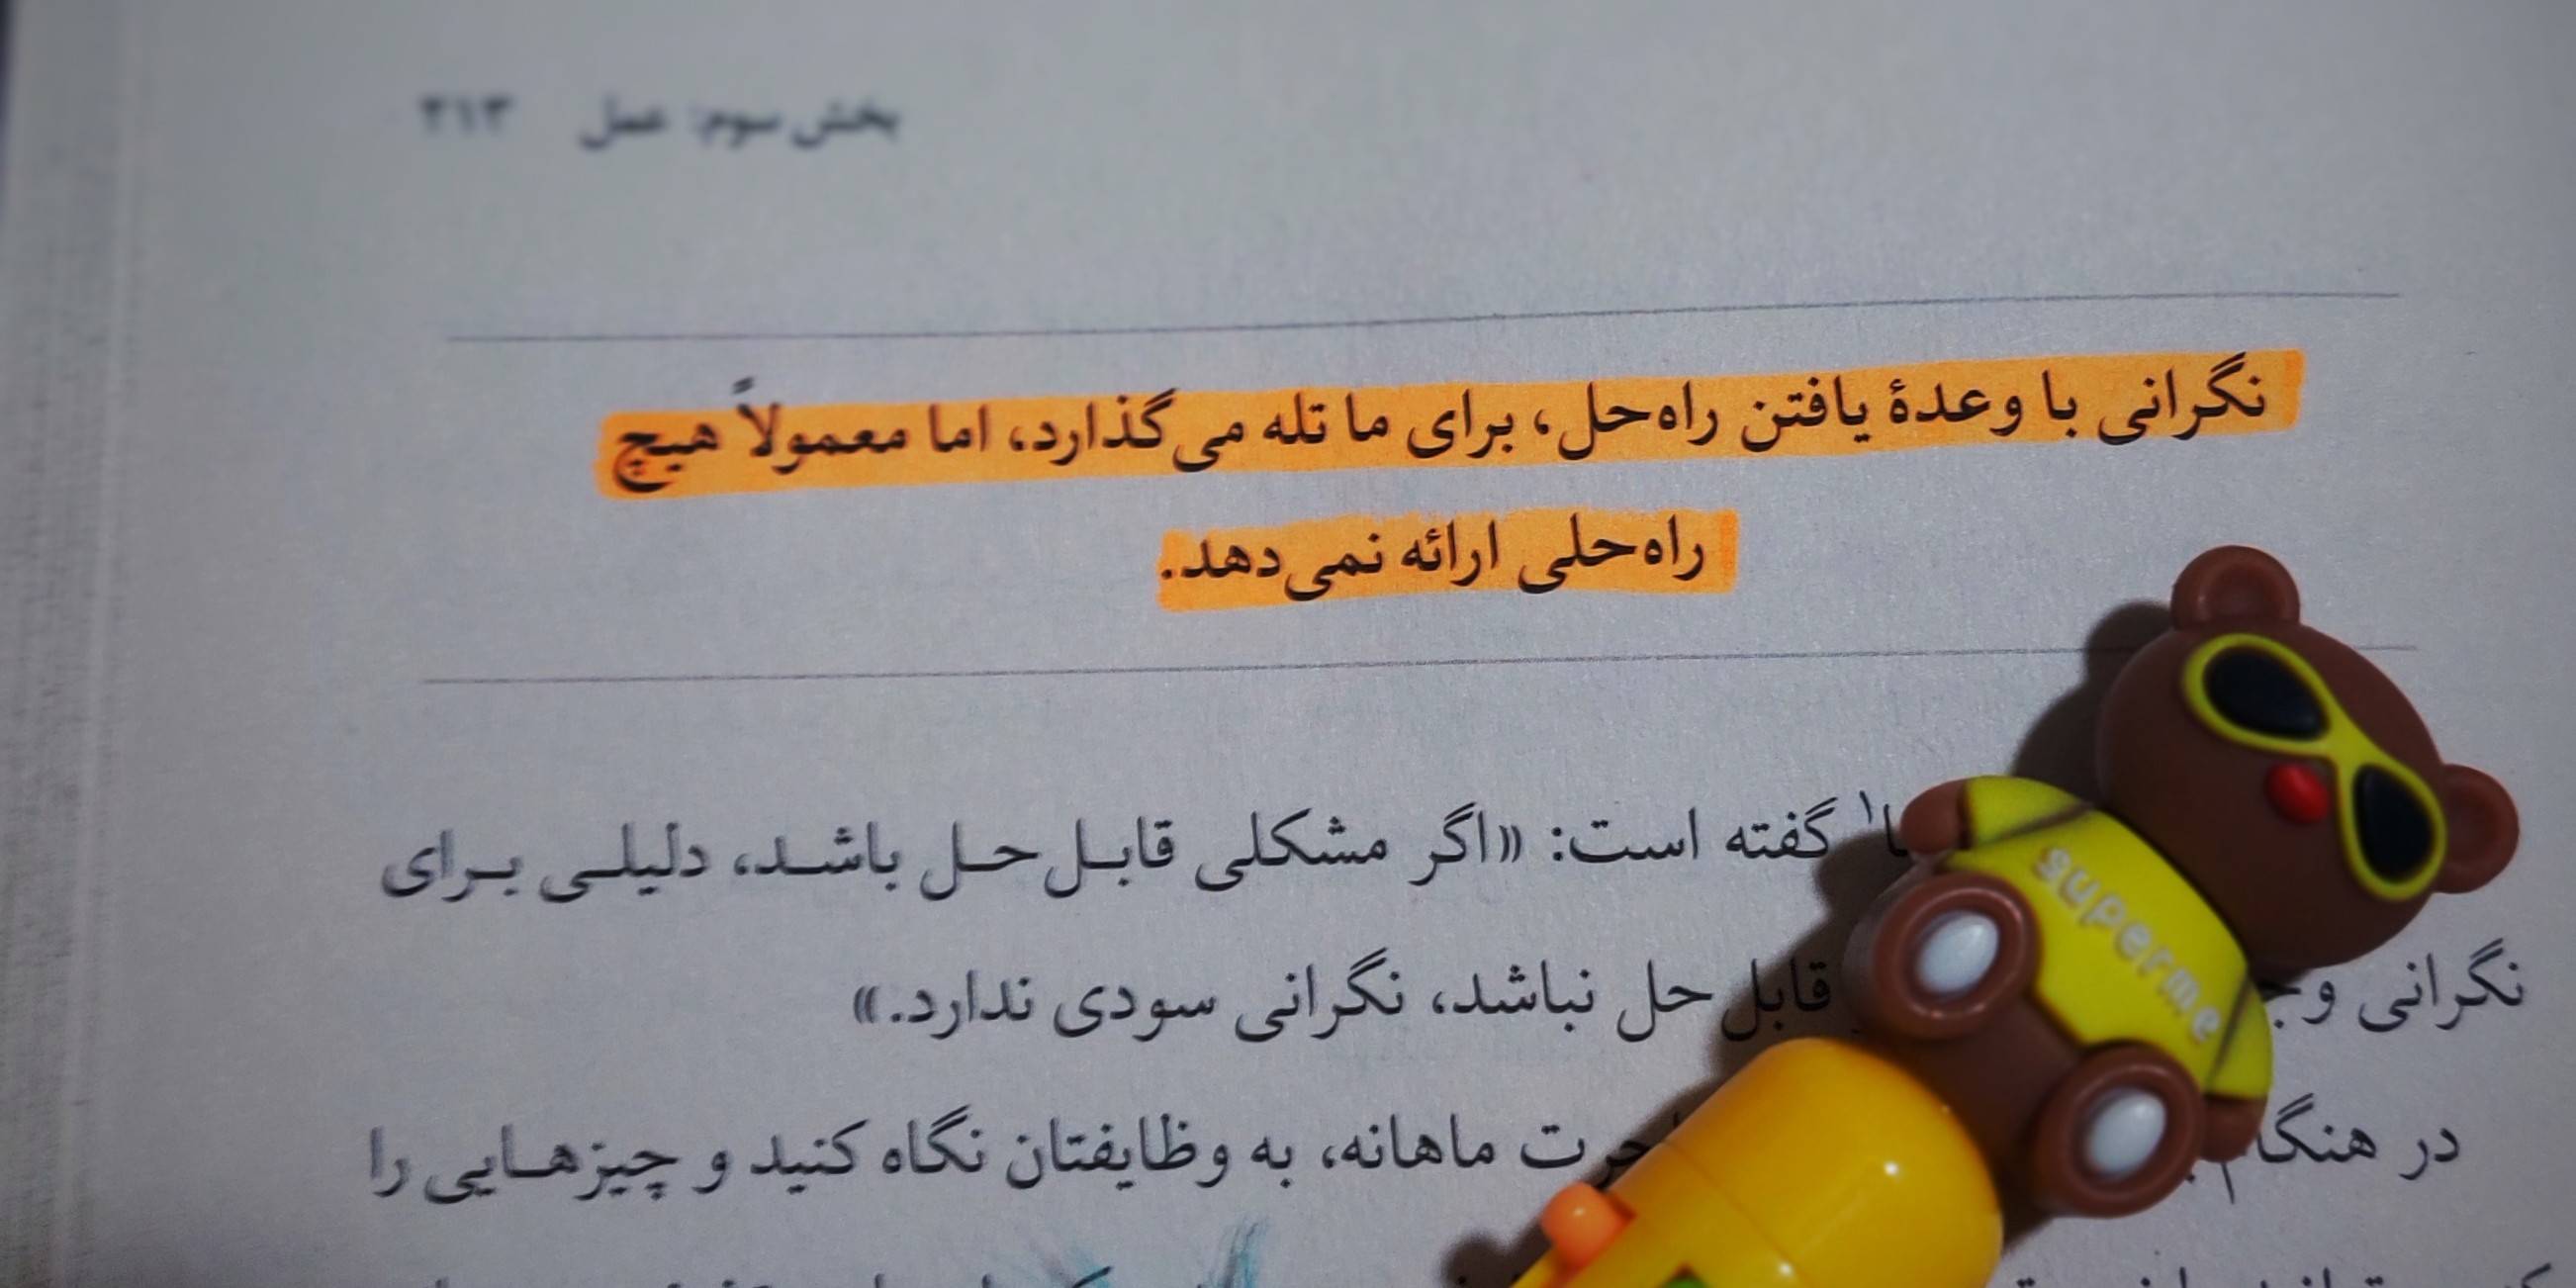 بخش سوم: عمل ۲۱۳
نگرانی با وعدهٔ یافتن راه‌حل، برای ما تله می‌گذارد، اما معمولاً هیچ
راه‌حلی ارائه نمی‌دهد.
گفته است: «اگر مشکلی قابل‌حل باشد، دلیلی برای
نگرانی قابل حل نباشد، نگرانی سودی ندارد.»
در ماهانه، به وظایفتان نگاه کنید و چیزهایی را
superme